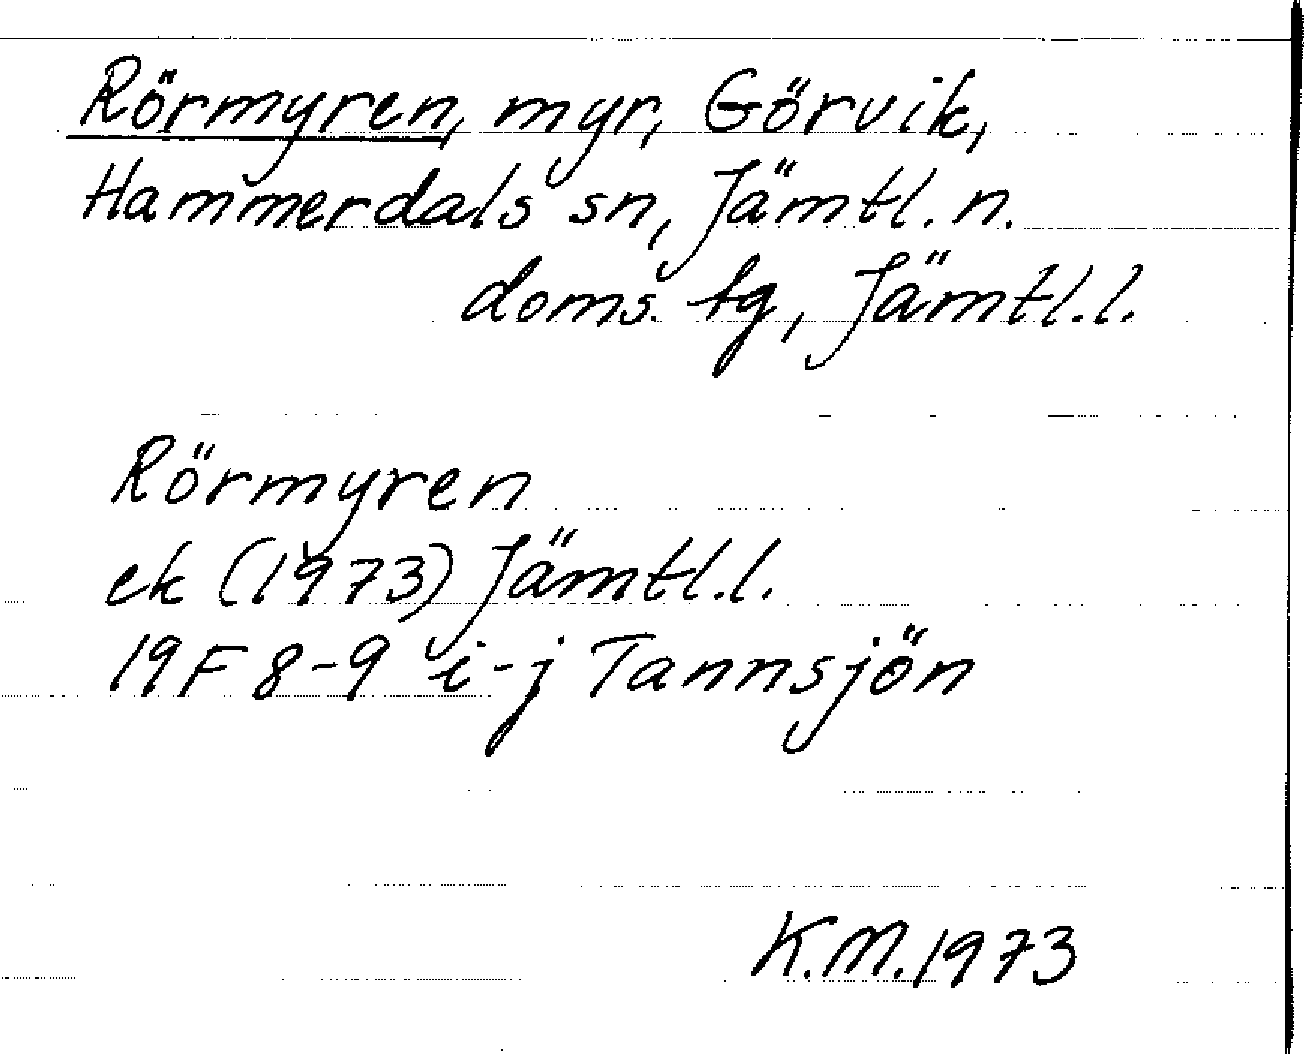 Rörmyren, myr, Görvik,
Hammerdals sn, Jämtl. n.
doms. tg, Jämtl.l.
Rörmyren
ek (1973) Jämtl.l.
19F 8-9 i-j Tannsjön
K.M.1973